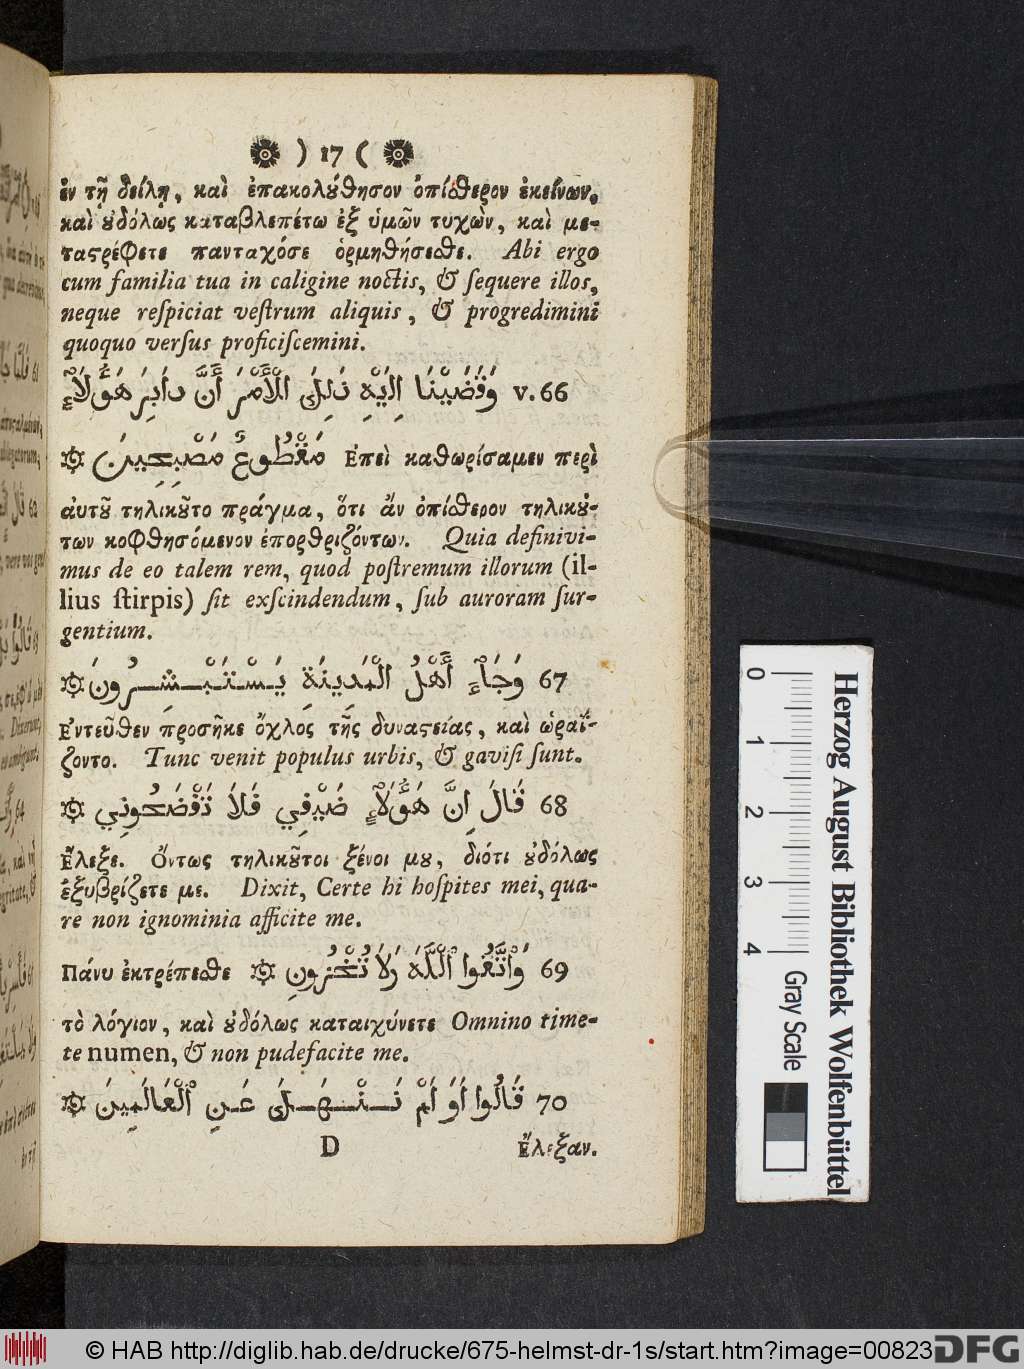 ) 17 (
ἐν τῇ δείλῃ, καὶ ἐπακολούθησον ὀπίσθερον ἐκείνων,
καὶ οὐδόλως καταβλεπέτω ἐξ ὑμῶν τυχὼν, καὶ με-
ταστρέφετε πανταχόσε ὁρμηθήσεσθε. Abi ergo
cum familia tua in caligine noctis, & ſequere illos,
neque reſpiciat veſtrum aliquis, & progredimini
quoquo verſus proficiſcemini.
v. 66 وَقَضَيْنَا إِلَيْهِ ذَلِكَ الْأَمْرَ أَنَّ دَابِرَ هَؤُلَاءِ
مَقْطُوعٌ مُصْبِحِينَ Ἐπεὶ καθωρίσαμεν περὶ
αὐτοῦ τηλικοῦτο πράγμα, ὅτι ἂν ὀπίσθερον τηλικού-
των κοφθησόμενον ἐπορθριζόντων. Quia definivi-
mus de eo talem rem, quod poſtremum illorum (il-
lius ſtirpis) ſit exſcindendum, ſub auroram ſur-
gentium.
67 وَجَاءَ أَهْلُ الْمَدِينَةِ يَسْتَبْشِرُونَ
Ἐντεῦθεν προσῆκε ὄχλος τῆς δυναστείας, καὶ ὡραΐ-
ζοντο. Tunc venit populus urbis, & gaviſi ſunt.
68 قَالَ إِنَّ هَؤُلَاءِ ضَيْفِي فَلَا تَفْضَحُونِي
Ἔλεξε. Ὄντως τηλικοῦτοι ξένοι μου, διότι οὐδόλως
ἐξυβρίζετε με. Dixit, Certe hi hoſpites mei, qua-
re non ignominia afficite me.
69 وَاتَّقُوا اللَّهَ وَلَا تُخْزُونِ Πάνυ ἐκτρέπεσθε
τὸ λόγιον, καὶ οὐδόλως καταιχύνετε Omnino time-
te numen, & non pudefacite me.
70 قَالُوا أَوَ لَمْ نَنْهَكَ عَنِ الْعَالَمِينَ
D Ἔλεξαν.
0 1 2 3 4
Gray Scale
Herzog August Bibliothek Wolfenbüttel
© HAB http://diglib.hab.de/drucke/675-helmst-dr-1s/start.htm?image=00823
DFG